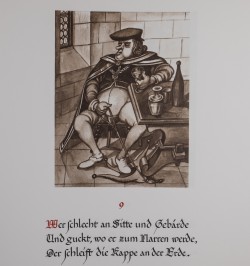 9
Wer schlecht an Sitte und Gebärde
Und guckt, wo er zum Narren werde,
Der schleift die Kappe an der Erde.